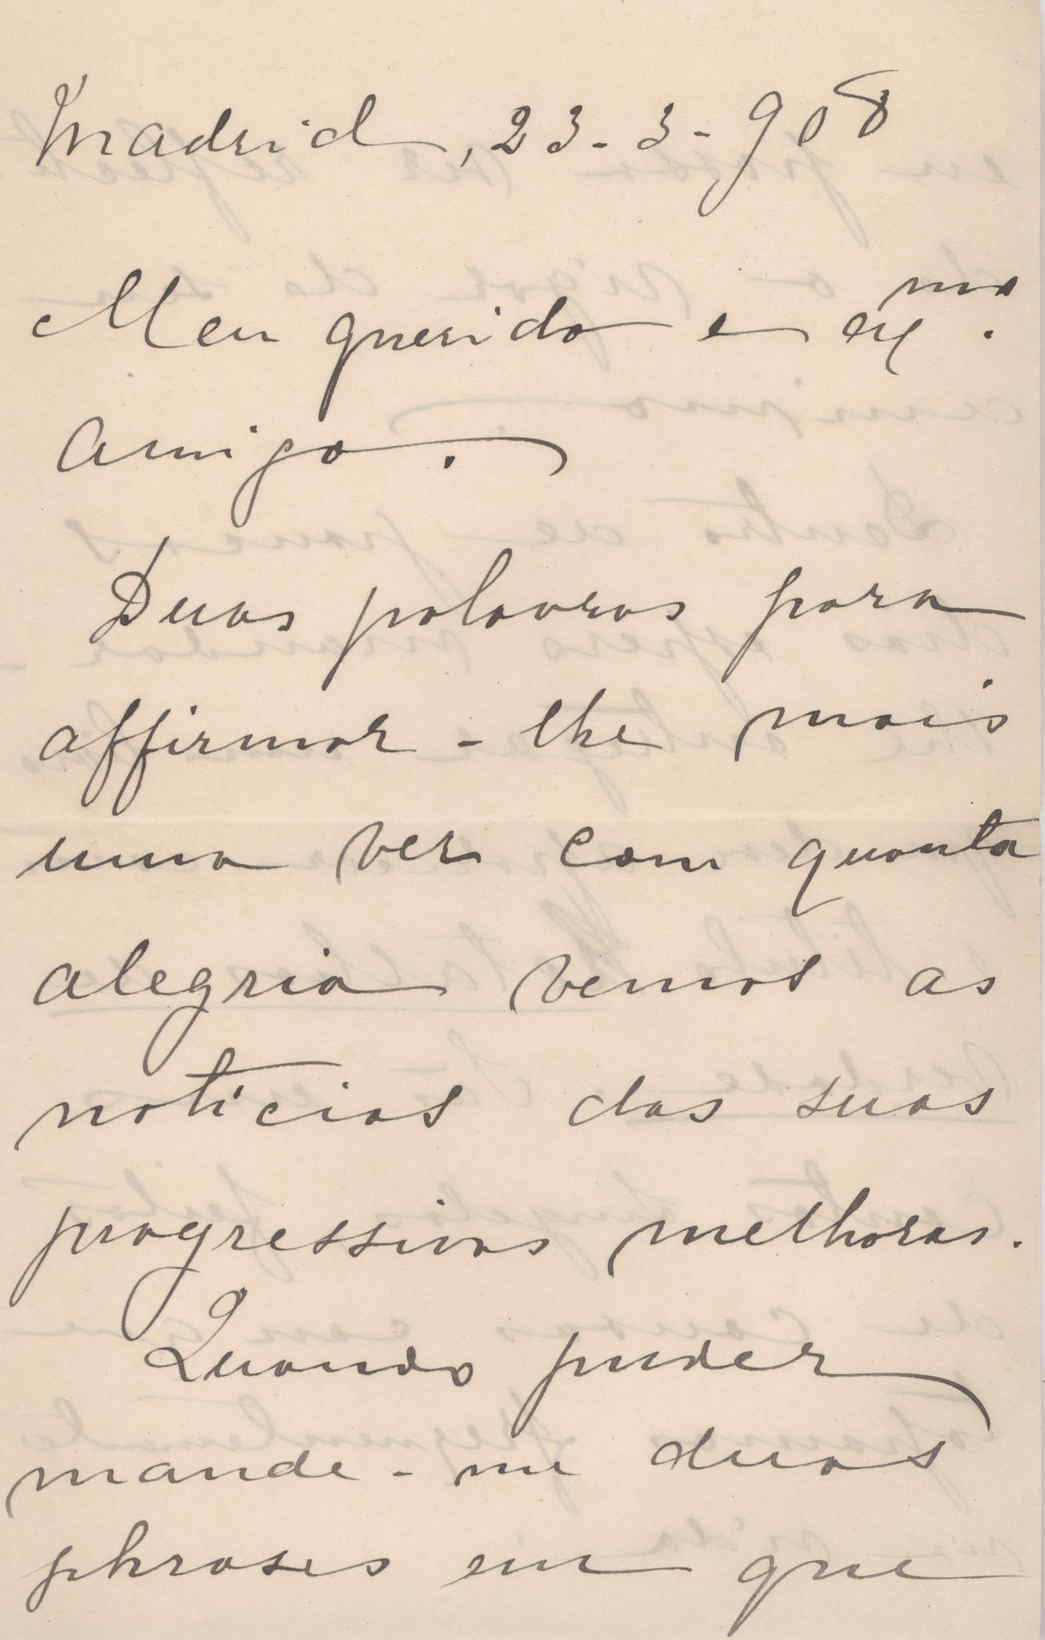 Madrid, 23-3-908
Meu querido e ex.mo
Amigo.
Duas palavras para
affirmar-lhe mais
uma vez com quanta
alegria vemos as
noticias das suas
progressivas melhoras.
Quando puder
mande-me duas
phrases em que